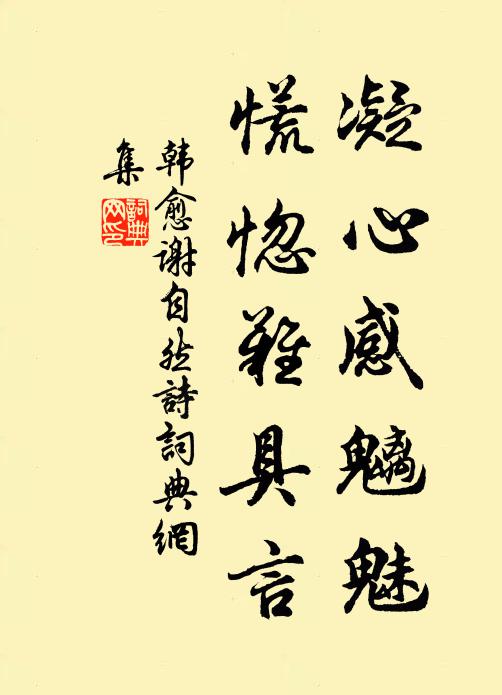 凝心感魑魅
慌惚難具言
韩愈谢自然詩詞典網
集
詞典
网印